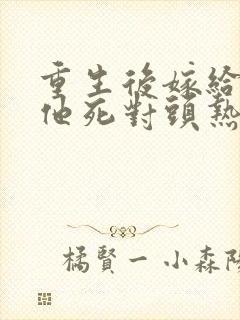 重生後嫁給
他死對頭熱
橘賢一小森陽